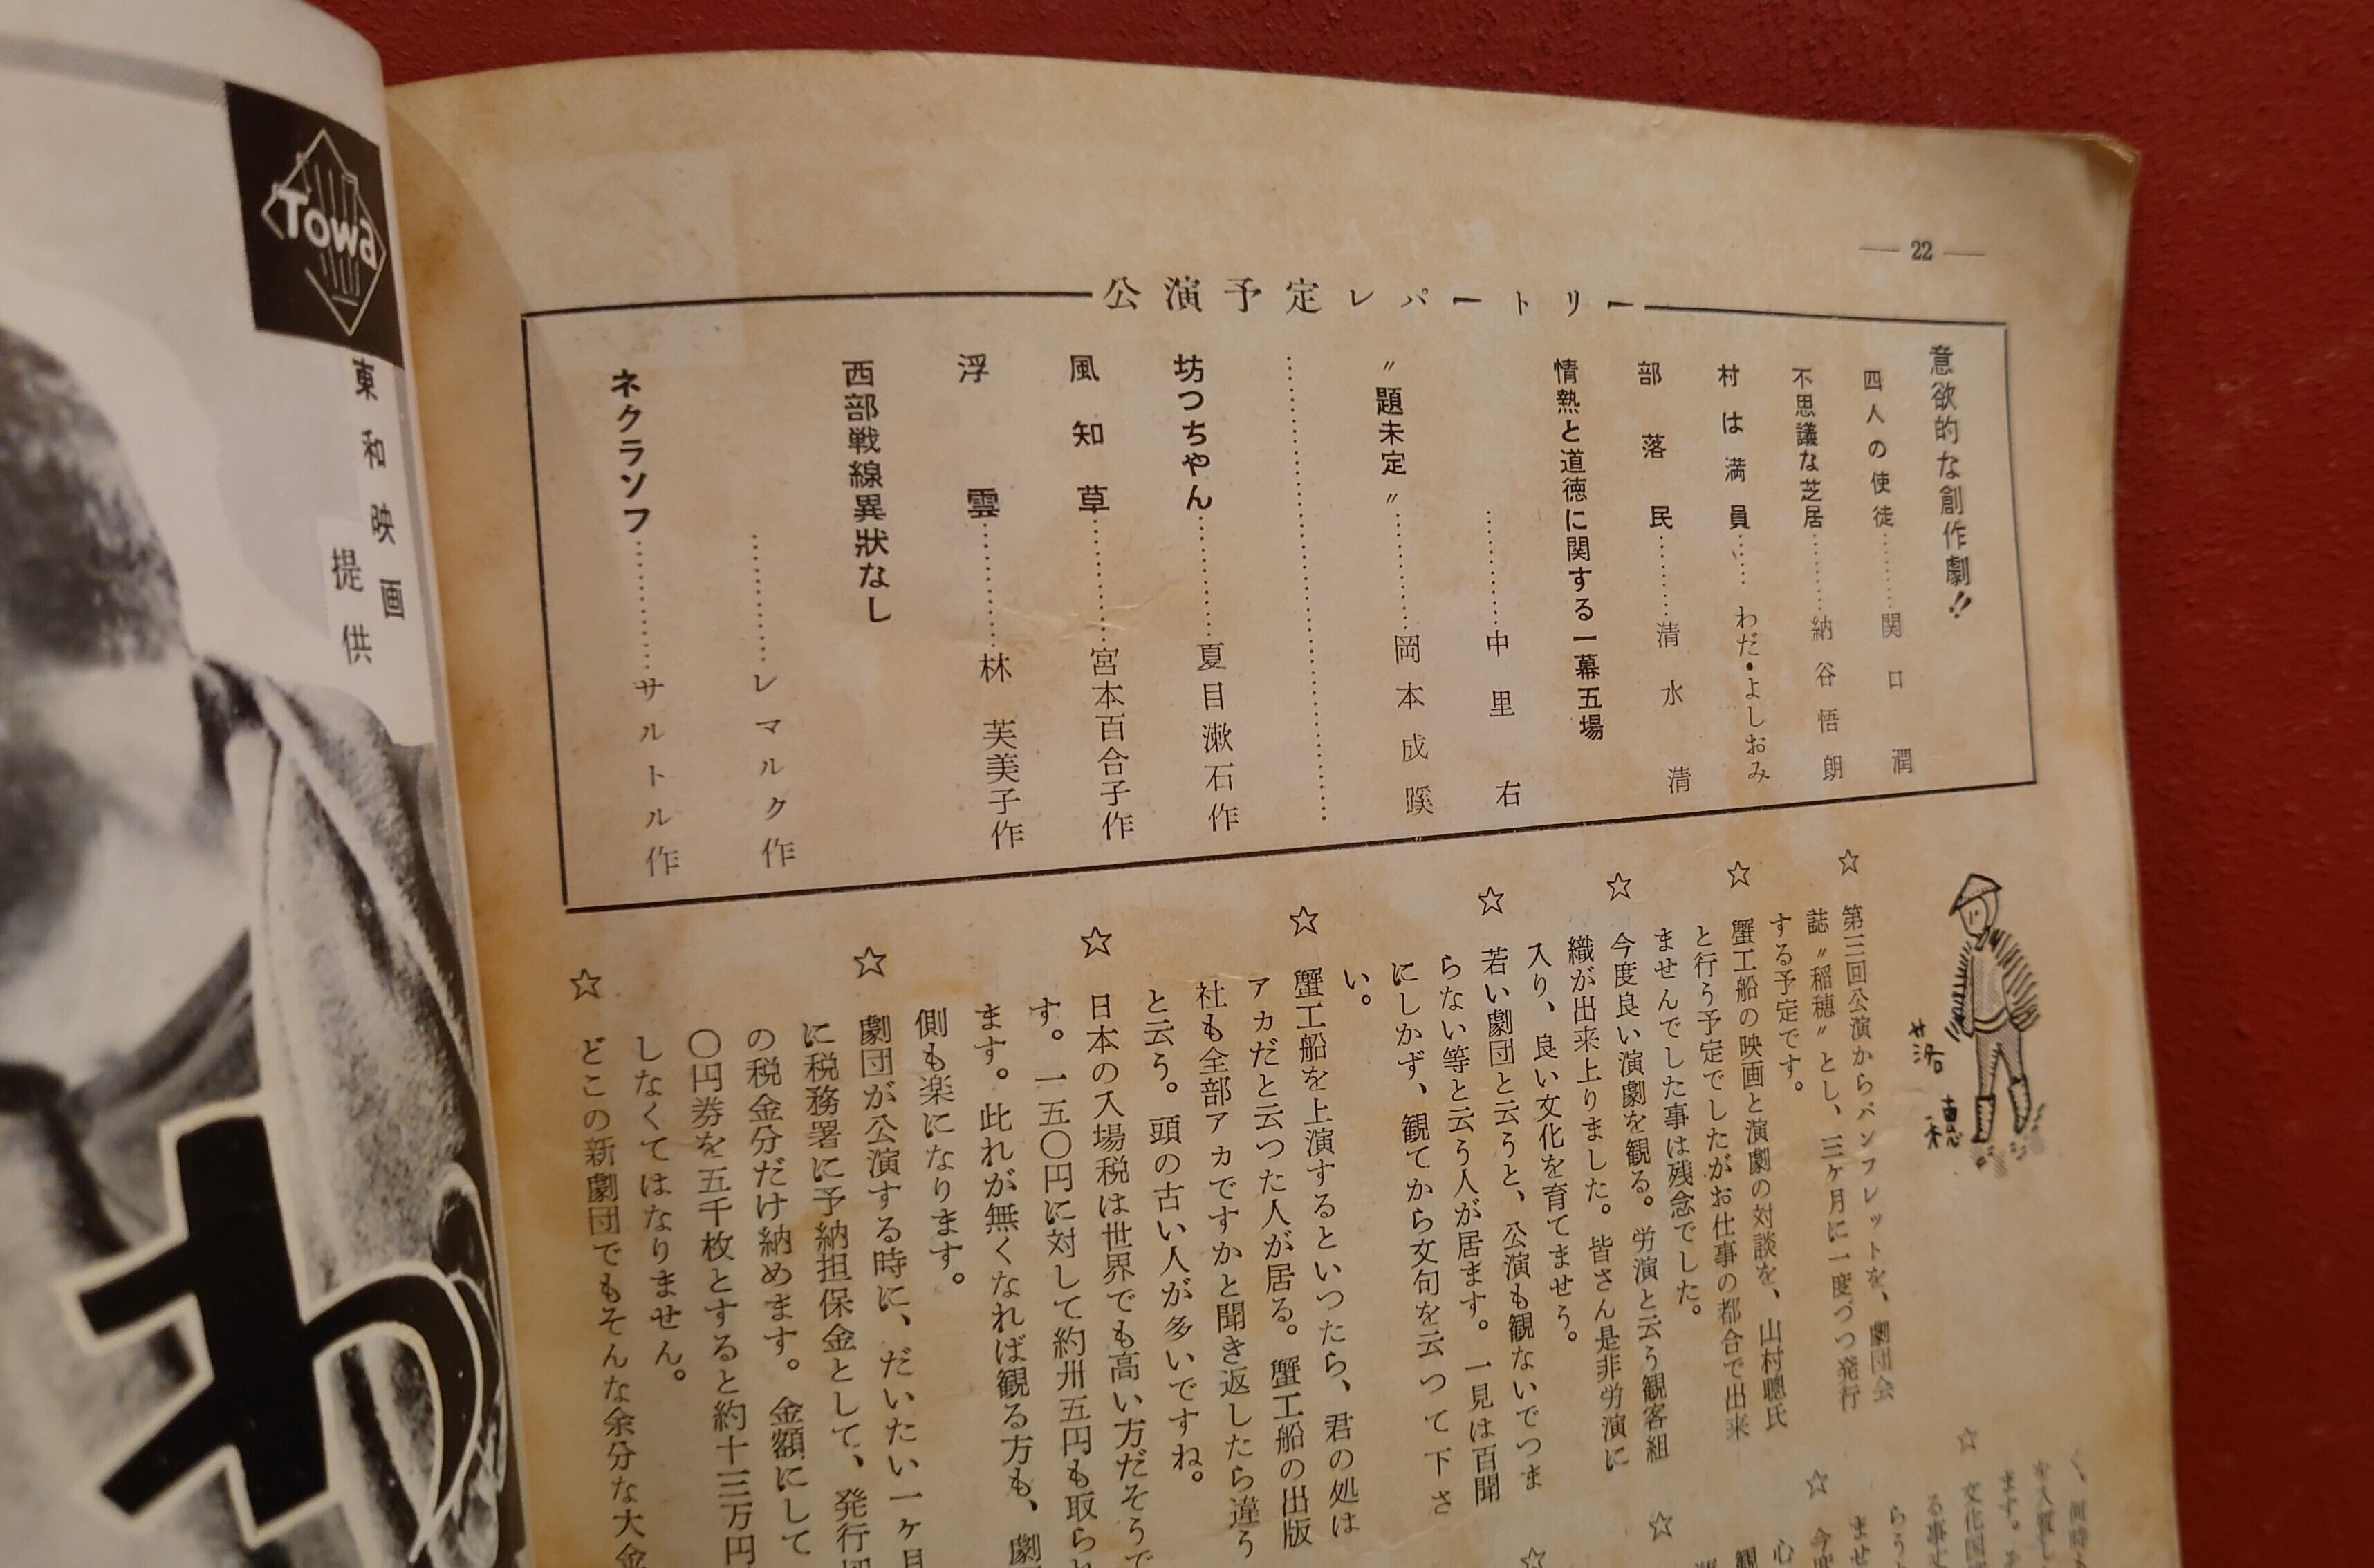 — 22 —
公演予定レパートリー
意欲的な創作劇!!
四人の使徒………関口潤
不思議な芝居………納谷悟朗
村は満員……わだ・よしおみ
部落民………清水清
情熱と道徳に関する一幕五場
…………中里右
〃題未定〃…………岡本成蹊
坊つちやん…………夏目漱石作
風知草…………宮本百合子作
浮雲…………林芙美子作
西部戦線異狀なし
…………レマルク作
ネクラソフ…………サルトル作
☆ 第三回公演からパンフレットを、劇団会
誌〃稲穂〃とし、三ケ月に一度づつ発行
する予定です。
☆ 蟹工船の映画と演劇の対談を、山村聰氏
と行う予定でしたがお仕事の都合で出来
ませんでした事は残念でした。
☆ 今度良い演劇を観る。労演と云う観客組
織が出来上りました。皆さん是非労演に
入り、良い文化を育てませう。
☆ 若い劇団と云うと、公演も観ないでつま
らない等と云う人が居ます。一見は百聞
にしかず、観てから文句を云つて下さ
い。
☆ 蟹工船を上演するといつたら、君の処は
アカだと云つた人が居る。蟹工船の出版
社も全部アカですかと聞き返したら違う
と云う。頭の古い人が多いですね。
☆ 日本の入場税は世界でも高い方だそうで
す。一五〇円に対して約卅五円も取られ
ます。此れが無くなれば観る方も、劇
側も楽になります。
☆ 劇団が公演する時に、だいたい一ケ月
に税務署に予納担保金として、発行
の税金分だけ納めます。金額にして
〇円券を五千枚とすると約十三万円
しなくてはなりません。
☆ どこの新劇団でもそんな余分な大金
Towa
東和映画
提供
わ